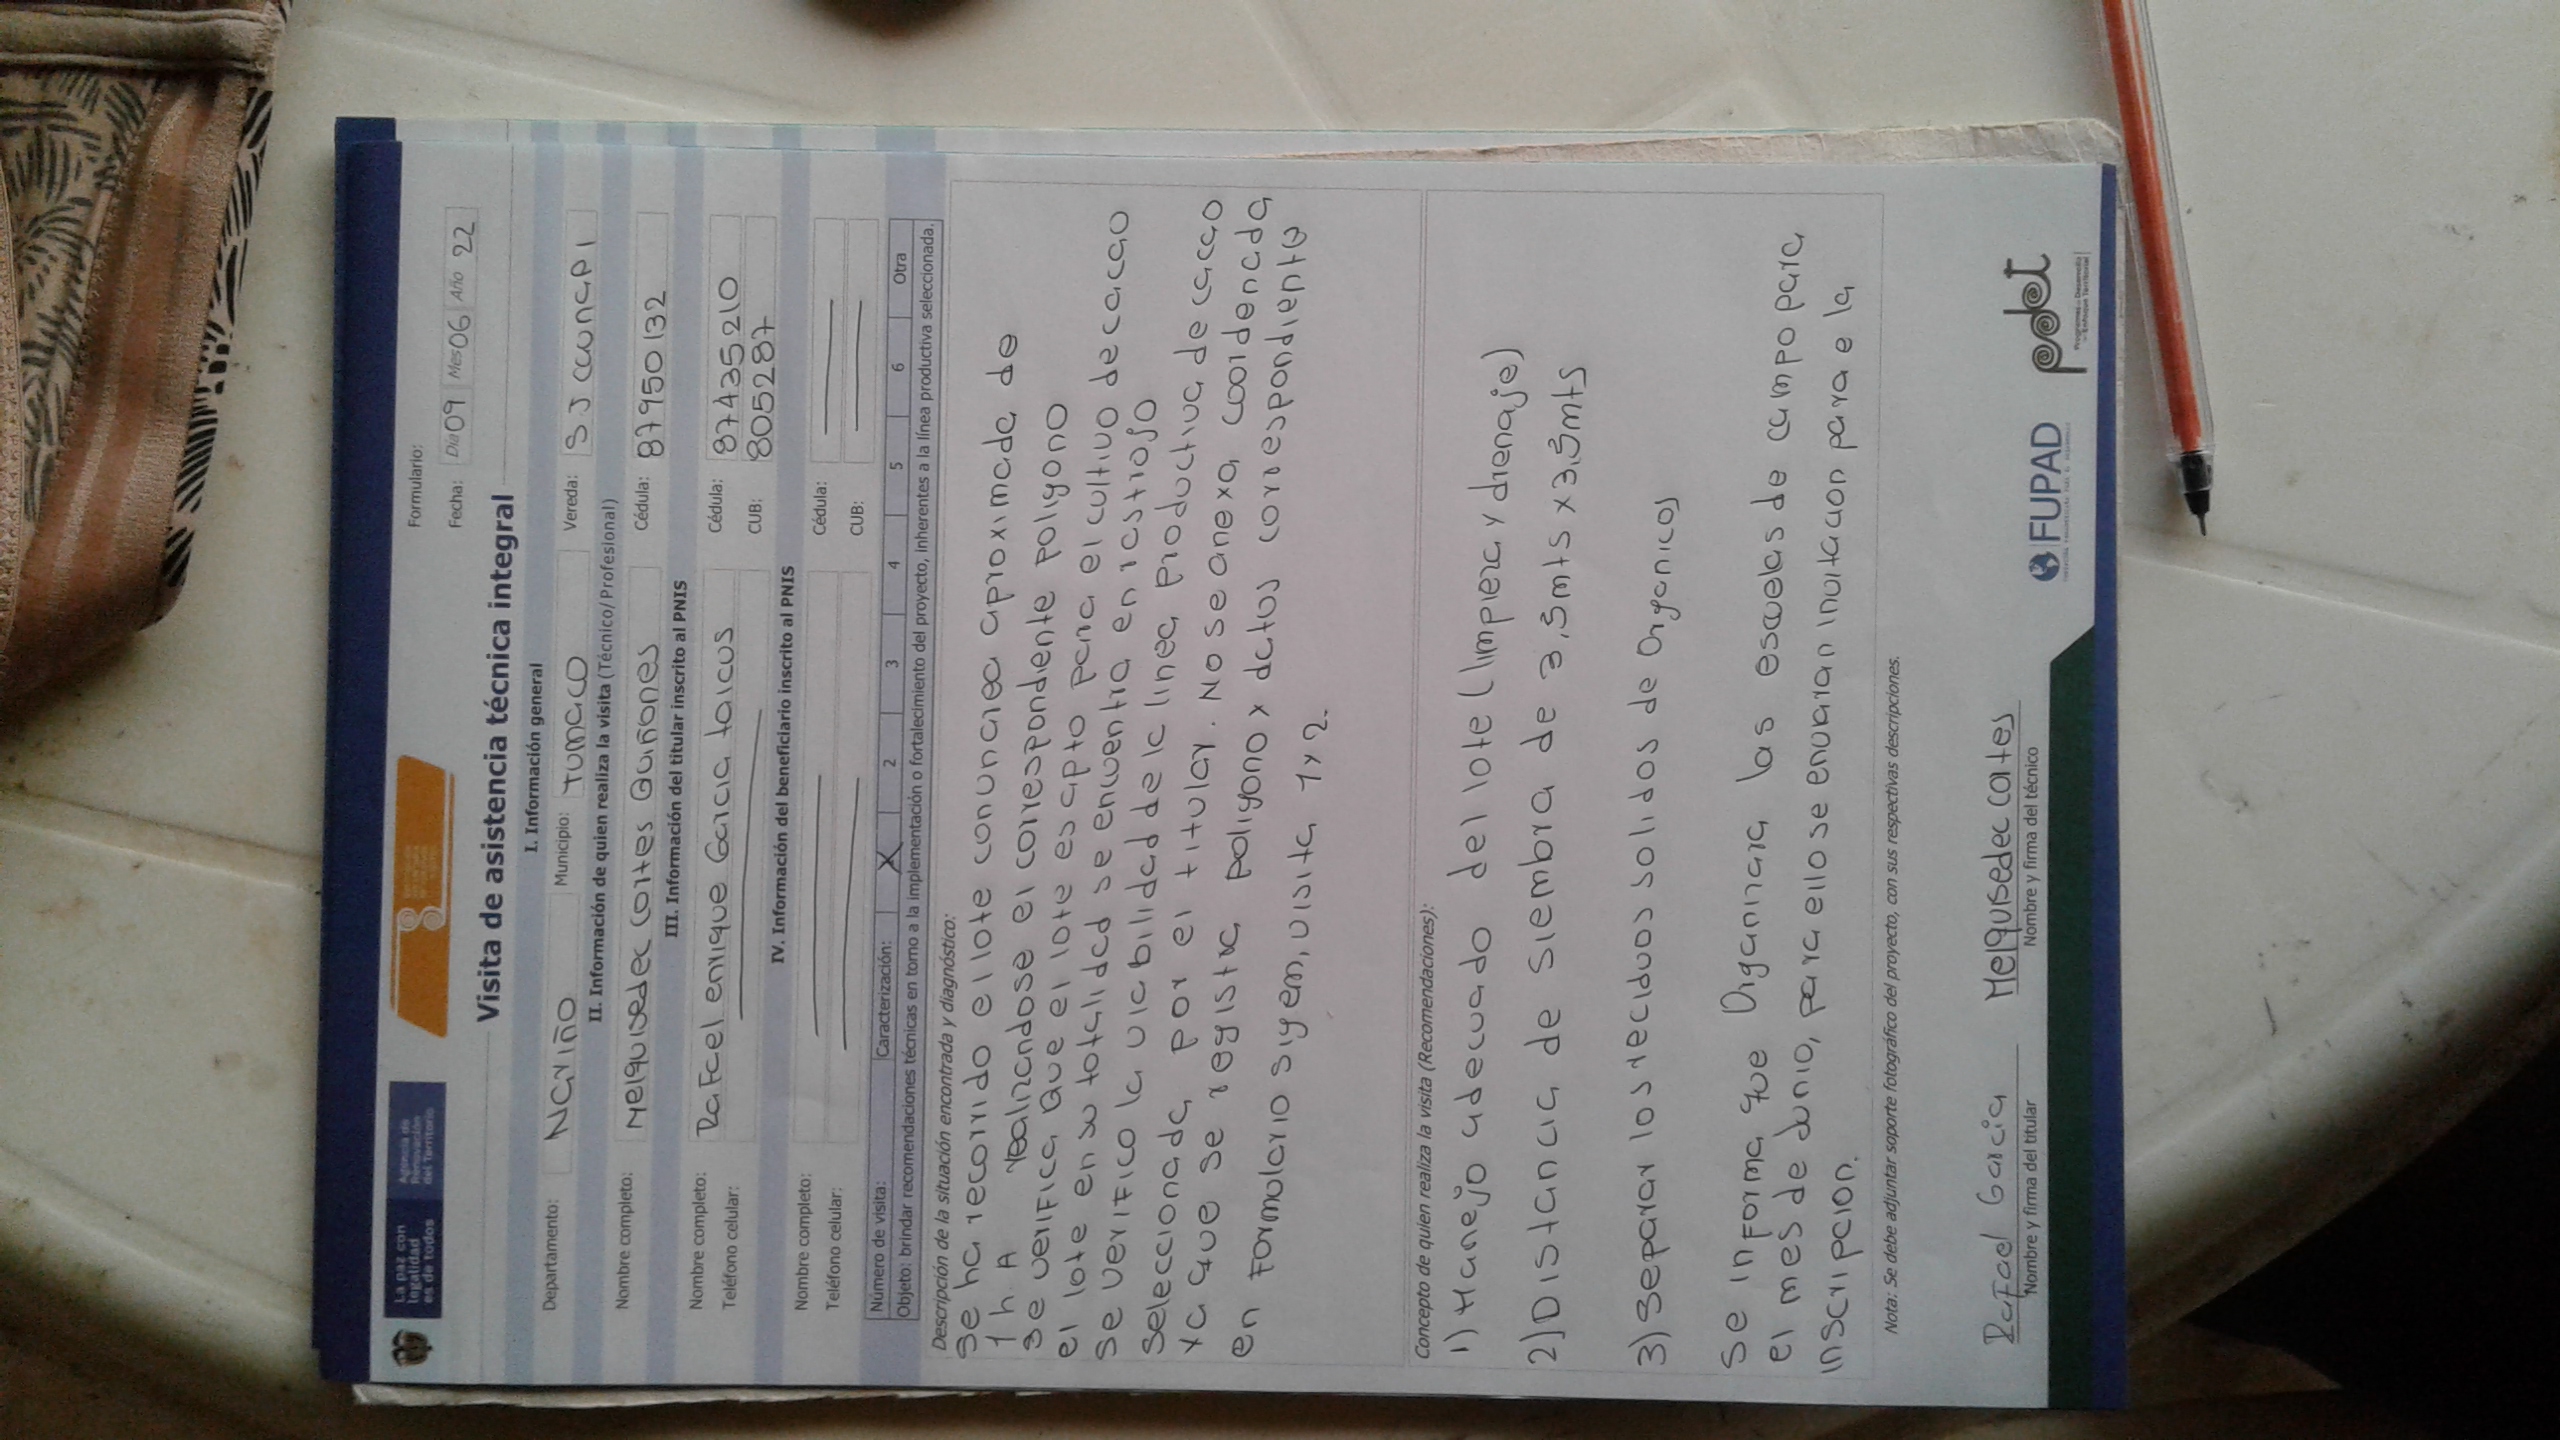 La paz con
legalidad
es de todos
Agencia de
Renovación
del Territorio
Formulario:
Fecha: Día 09 Mes 06 Año 22
Visita de asistencia técnica integral
I. Información general
Departamento: Nariño Municipio: Tumaco Vereda: S J caunapi
II. Información de quien realiza la visita (Técnico/Profesional)
Nombre completo: Melquisedec cortes Quiñones Cédula: 87950132
III. Información del titular inscrito al PNIS
Nombre completo: Rafael enrique Garcia taicus Cédula: 87435210
Teléfono celular: CUB: 8052287
IV. Información del beneficiario inscrito al PNIS
Nombre completo: Cédula:
Teléfono celular: CUB:
Número de visita: Caracterización: X 2 3 4 5 6 Otra
Objeto: brindar recomendaciones técnicas en torno a la implementación o fortalecimiento del proyecto, inherentes a la línea productiva seleccionada.
Descripción de la situación encontrada y diagnóstico:
Se ha recorrido el lote con un area aproximada de
1 h.A realizandose el correspondiente poligono
se verifica que el lote es apto para el cultivo de cacao
el lote en su totalidad se encuentra en rastrojo
se verifico la viabilidad de la linea productiva de cacao
seleccionada por el titular. No se anexa coordenada
ya que se registra poligono y datos correspondiente
en Formulario sygem, visita 1 y 2.
Concepto de quien realiza la visita (Recomendaciones):
1) Manejo adecuado del lote (limpieza y drenaje)
2) Distancia de siembra de 3,5mts x 3,5mts
3) Separar los reciduos solidos de organicos
Se informa que Organizara las escuelas de campo para
el mes de Junio, para ello se enviaran invitacion para e la
inscripcion.
Nota: Se debe adjuntar soporte fotográfico del proyecto, con sus respectivas descripciones.
Rafael Garcia Melquisedec cortes
Nombre y firma del titular Nombre y firma del técnico
FUPAD
pdet
Programas de Desarrollo
con Enfoque Territorial